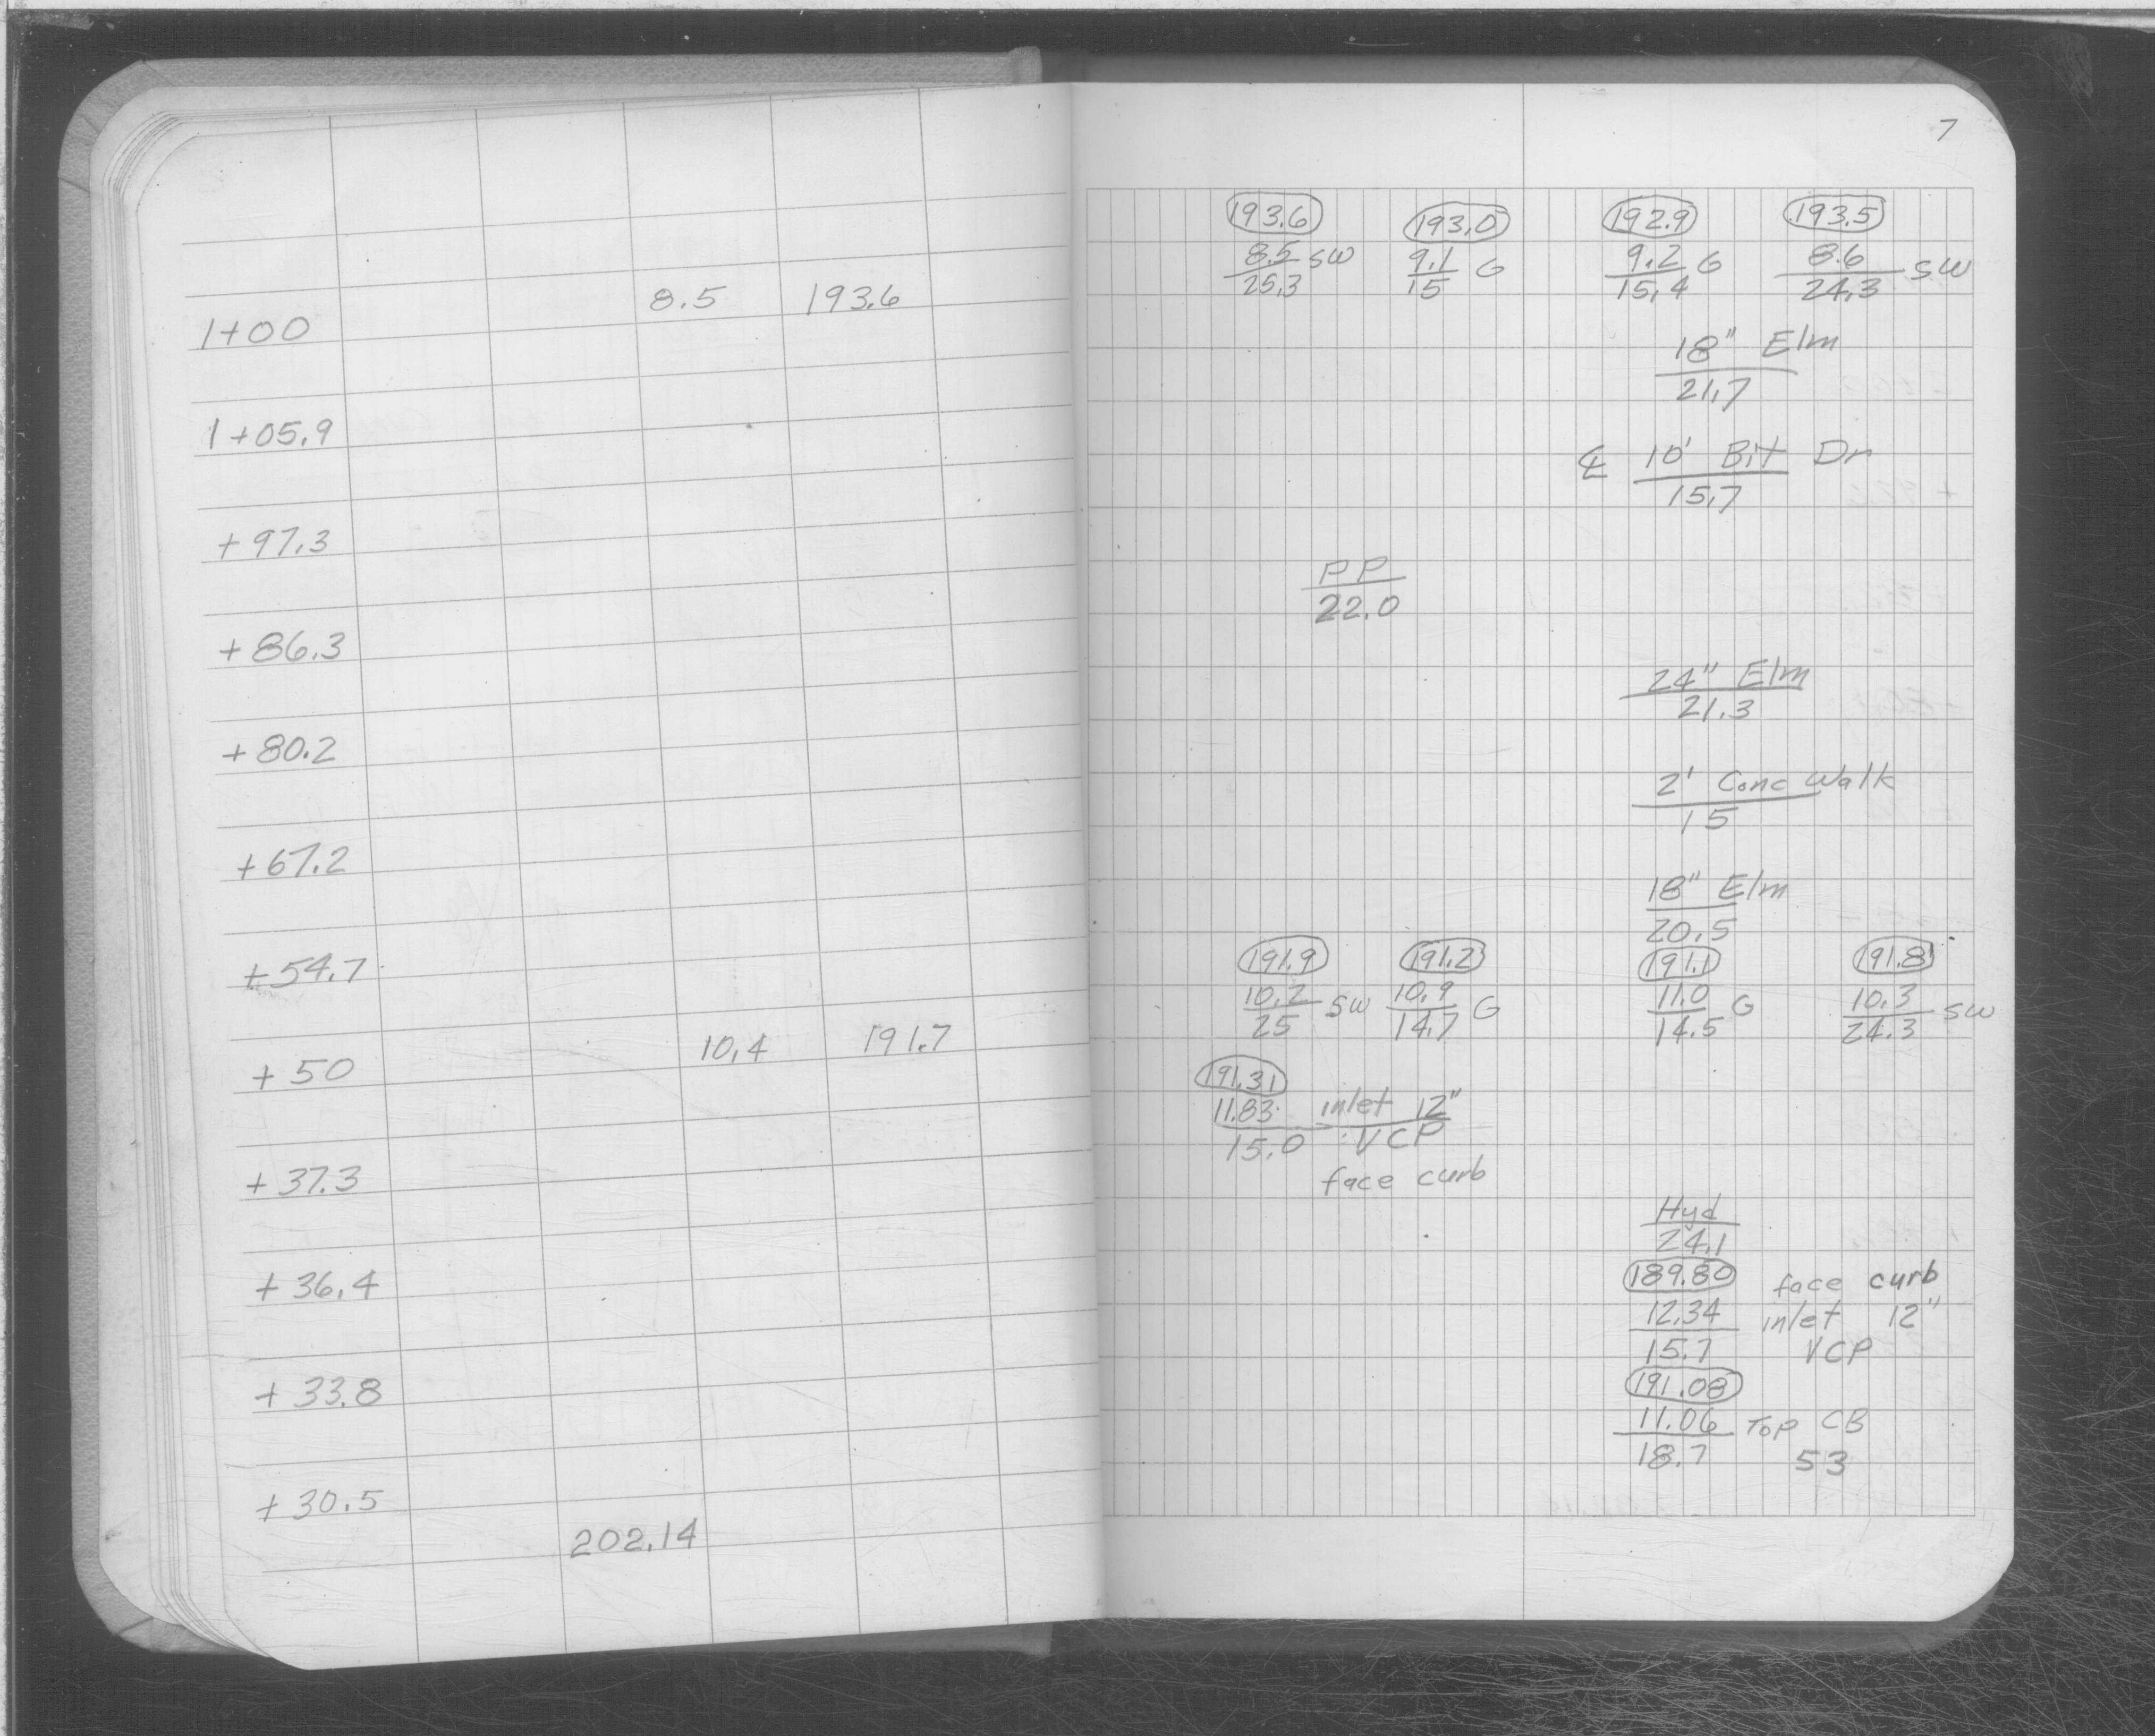 1+00 8.5 193.6
1+05.9
+97.3
+86.3
+80.2
+67.2
+54.7
+50 10.4 191.7
+37.3
+36.4
+33.8
+30.5
202.14
7
193.6 193.0 192.9 193.5
8.5 SW 9.1 G 9.2 G 8.6 SW
25.3 15 15.4 24.3
18" Elm
21.7
℄ 10' Bit Dr
15.7
PP
22.0
24" Elm
21.3
2' Conc Walk
15
18" Elm
20.5
191.9 191.2 191.1 191.8
10.2 SW 10.9 G 11.0 G 10.3 SW
25 14.7 14.5 24.3
191.31
11.83 inlet 12"
15.0 VCP
face curb
Hyd
24.1
189.80 face curb
12.34 inlet 12"
15.7 VCP
191.08
11.06 Top CB
18.7 53